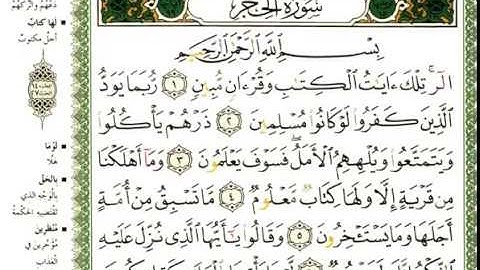 سُورَةُ الحِجْرِ
بِسْمِ اللَّهِ الرَّحْمَٰنِ الرَّحِيمِ
الٓر ۚ تِلْكَ ءَايَٰتُ الْكِتَٰبِ وَقُرْءَانٍ مُّبِينٍ ١ رُّبَمَا يَوَدُّ
الَّذِينَ كَفَرُوا لَوْ كَانُوا مُسْلِمِينَ ٢ ذَرْهُمْ يَأْكُلُوا
وَيَتَمَتَّعُوا وَيُلْهِهِمُ الْأَمَلُ ۖ فَسَوْفَ يَعْلَمُونَ ٣ وَمَآ أَهْلَكْنَا
مِن قَرْيَةٍ إِلَّا وَلَهَا كِتَابٌ مَّعْلُومٌ ٤ مَّا تَسْبِقُ مِنْ أُمَّةٍ
أَجَلَهَا وَمَا يَسْتَـْٔخِرُونَ ٥ وَقَالُوا يَٰٓأَيُّهَا الَّذِي نُزِّلَ عَلَيْهِ
لها كتابٌ
أجلٌ مكتوبٌ
لَوْمَا
هلّا
بالحَقّ
بالوَجْهِ الذي
تقتضيه الحكمة
مُنظَرِين
مُؤخّرين في
العذاب